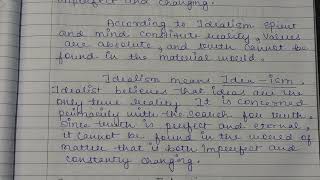 imperfect and changing.
According to Idealism spirit
and mind constitute reality, values
are absolute, and truth cannot be
found in the material world.
Idealism means Idea-ism.
Idealist believes that ideas are the
only true reality. It is concerned
primarily with the search for truth.
Since truth is perfect and eternal,
it cannot be found in the world of
matter that is both imperfect and
constantly changing.